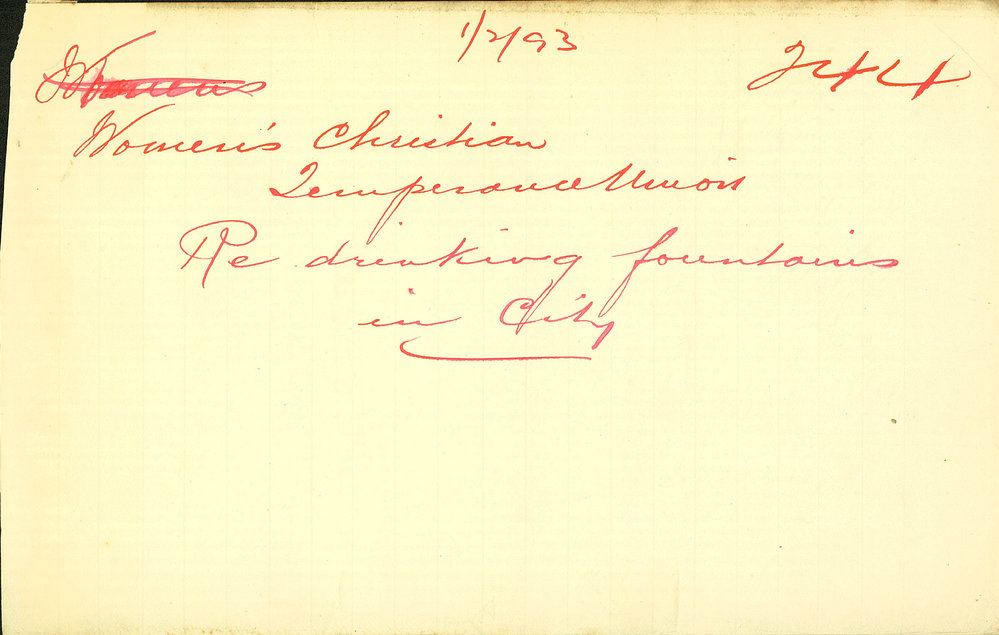 1/2/93
244
Women's
Women's Christian
Temperance Union
Re drinking fountains
in City